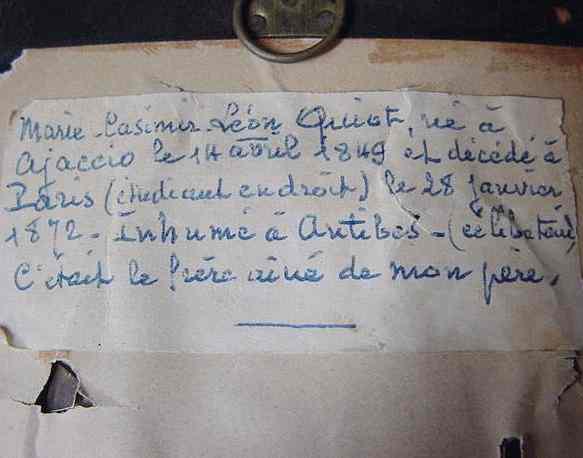 Marie-Casimir-Léon Quiot, né à
Ajaccio le 14 avril 1849 et décédé à
Paris (étudiant en droit) le 28 janvier
1872 - Inhumé à Antibes - (célibataire)
C'était le frère ainé de mon père.